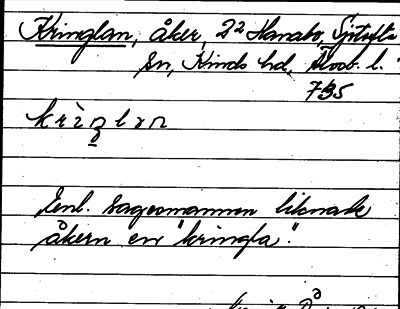 Kringlan, åker, 2² Hanabo, Sjötofta
sn, Kinds hd, Älvsb. l.
7/35
krìŋlan
Enl. sagesmannen liknade
åkern en "kringla".